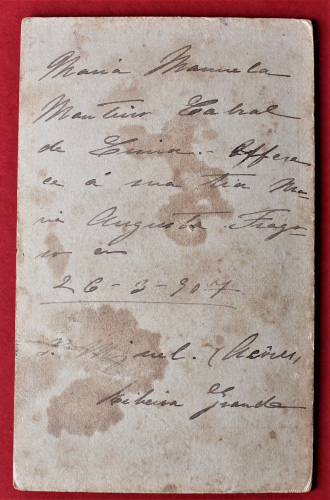 Maria Manuela
Monteiro Cabral
de Lima. Offere
ce á sua tia Ma
ria Augusta Frago
so em
26-3-907
S. Miguel. (Açores)
Ribeira Grande